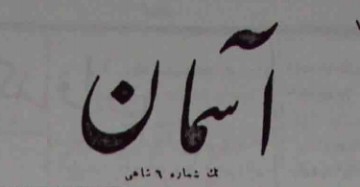 آسمان
تک شماره ۶ شاهی